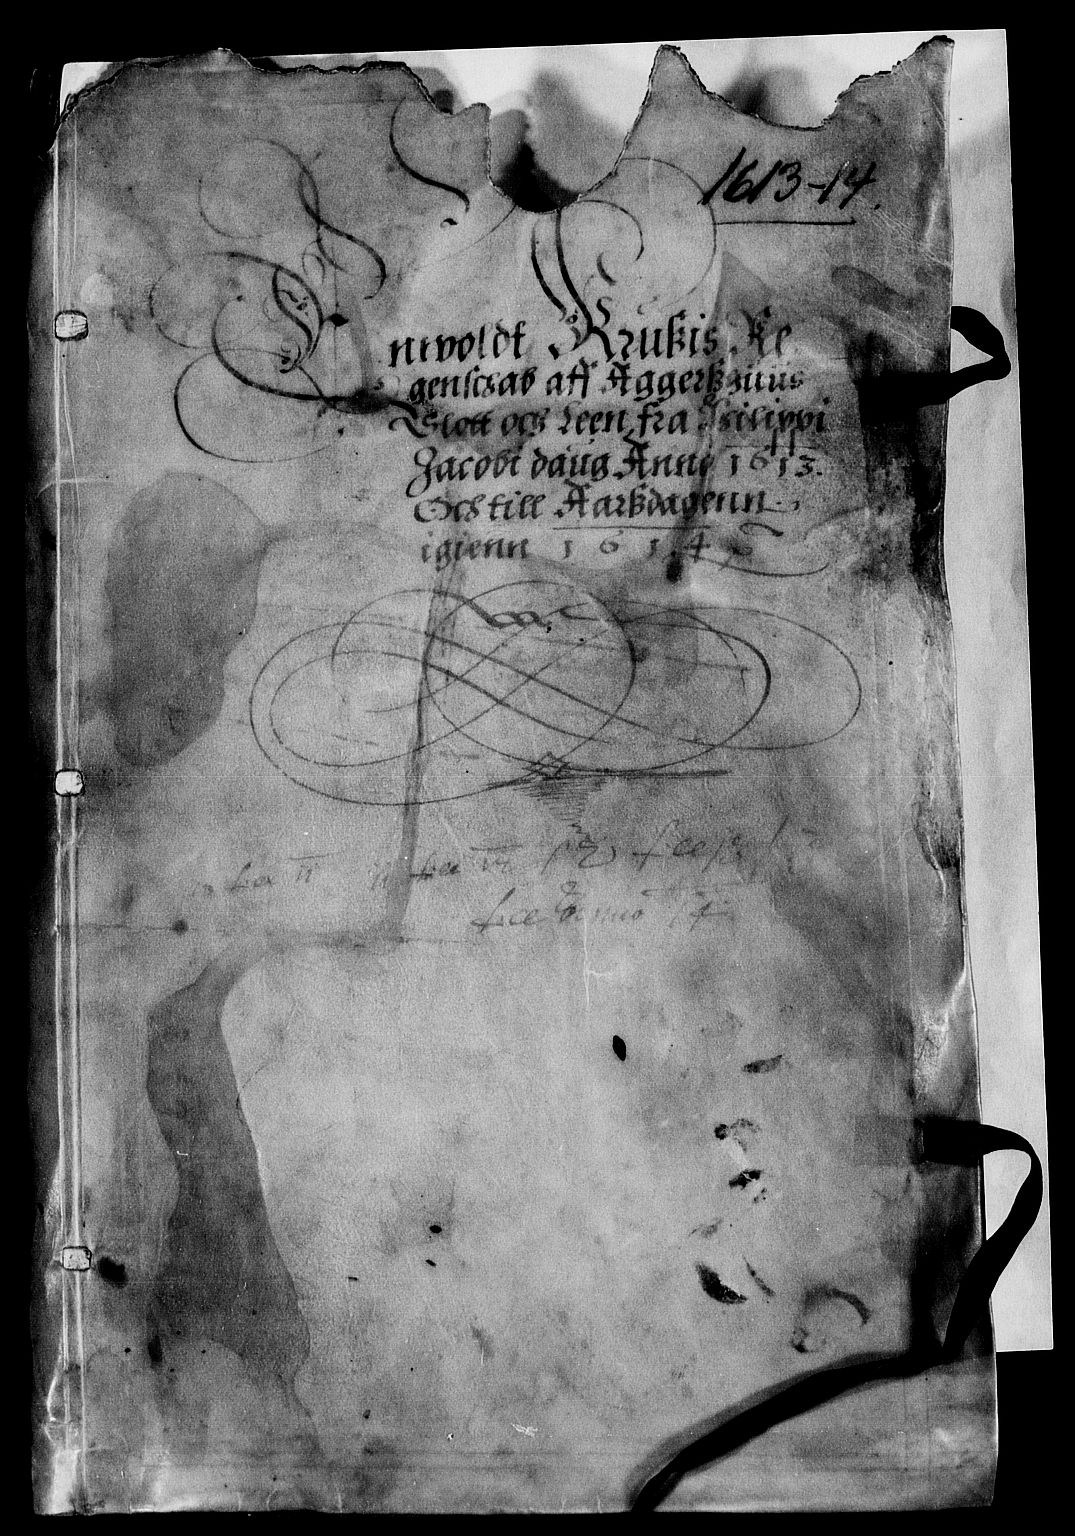 1613-14.
Enwoldt Krußis Re
genscab aff Aggerßhuus
Slott och Leen fra Philippi
Jacobi daug Anno 1613.
Och till Aarßdagenn
igienn 1614